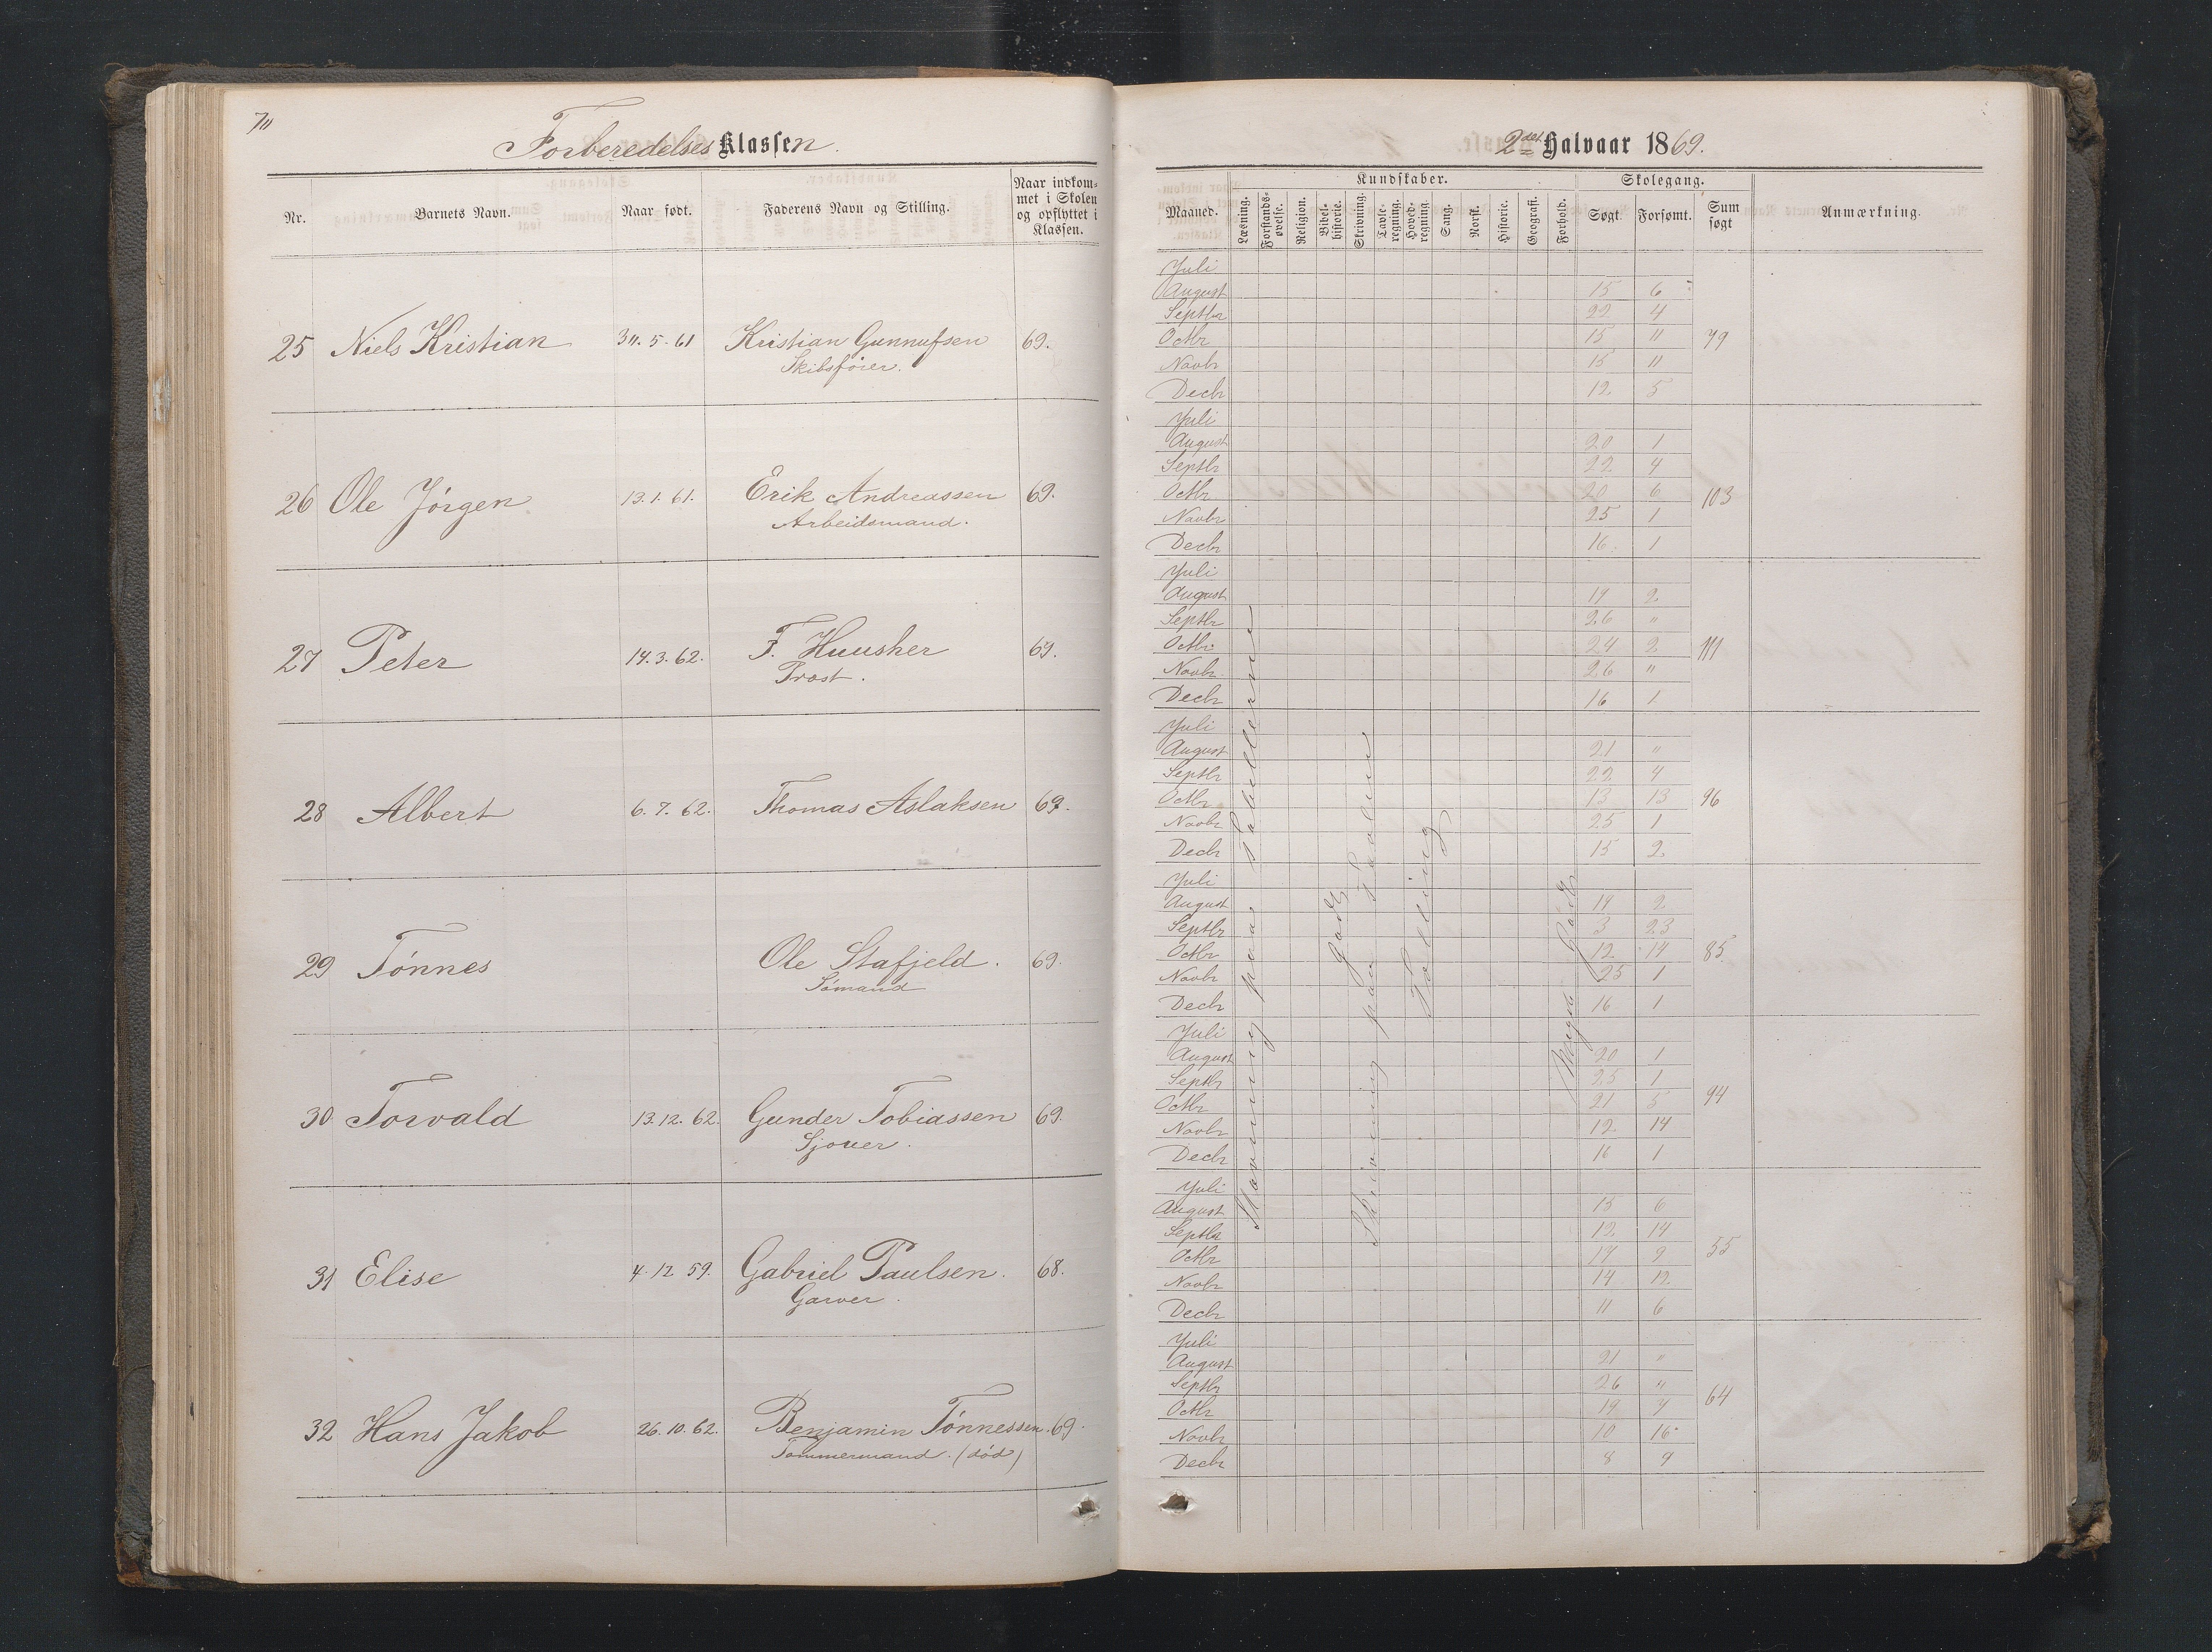 70
Forberedelses Klassen.
Nr. Barnets Navn. Naar født. Faderens Navn og Stilling. Naar indkommet i Skolen og opflyttet i Klassen.
25 Niels Kristian 30.5.61 Kristian Gunnufsen 69.
Skibsfører.
26 Ole Jörgen 13.1.61. Erik Andreassen 69.
Arbeidsmand.
27 Peter 14.3.62. F. Huusher 69.
Provst.
28 Albert 6.7.62. Thomas Aslaksen 69.
29 Tönnes Ole Stafjeld. 69.
Sömand
30 Torvald 13.12.62. Gunder Tobiassen 69.
Sjouer.
31 Elise 4.12 59. Gabriel Paulsen. 68.
Garver.
32 Hans Jakob 26.10.62. Benjamin Tönnessen. 69.
Tömmermand. (död)
2det Halvaar 1869.
Kundskaber. Skolegang.
Maaned. Læsning. Forstandsøvelse. Religion. Bibelhistorie. Skrivning. Tavleregning. Hovedregning. Sang. Norsk. Historie. Geografi. Forhold. Søgt. Forsømt. Sum søgt Anmærkning.
Juli
August 15 6
Septbr 22 4
Octbr 15 11 79
Novbr 15 11
Decbr 12 5
Juli
August 20 1
Septbr 22 4
Octbr 20 6 103
Novbr 25 1
Decbr 16 1
Juli
August 19 2
Septbr 26 "
Octbr 24 2 111
Novbr 26 "
Decbr 16 1
Juli
August 21 "
Septbr 22 4
Octbr 13 13 96
Novbr 25 1
Decbr 15 2
Juli
August 19 2
Septbr 3 23
Octbr 12 14 85
Novbr 25 1
Decbr 16 1
Juli
August 20 1
Septbr 25 1
Octbr 21 5 94
Novbr 12 14
Decbr 16 1
Juli
August 15 6
Septbr 12 14
Octbr 17 9 55
Novbr 14 12
Decbr 11 6
Juli
August 21 "
Septbr 26 "
Octbr 19 7 64
Novbr 10 16
Decbr 8 9
Stavning paa Tabellerne
Godt
Skrivning paa Tavlen
Tælling
Meget Godt